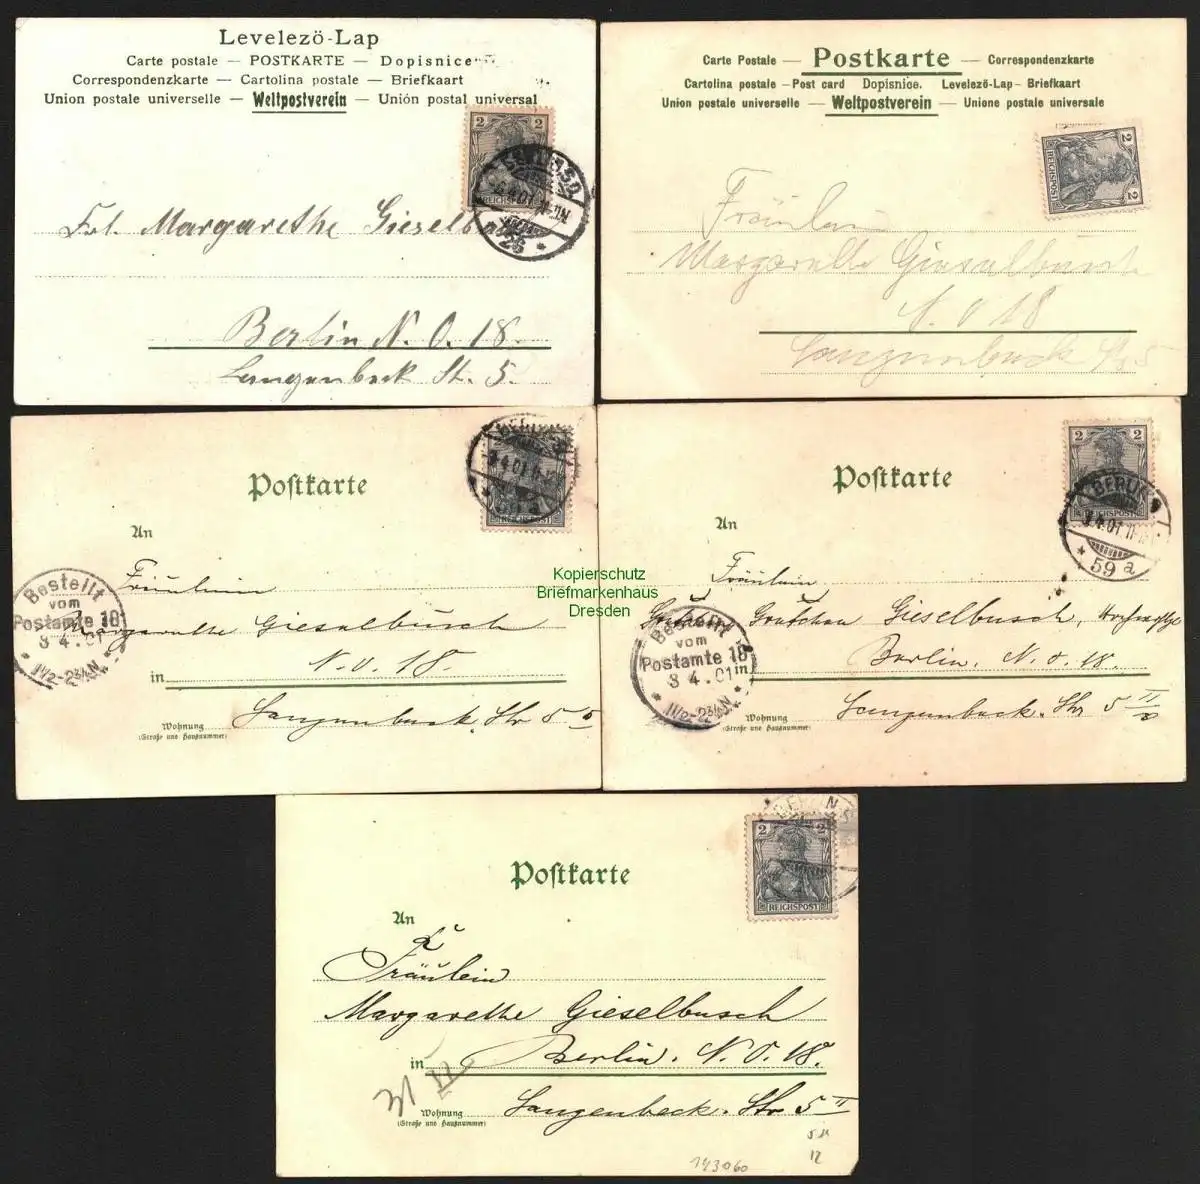 Levelező-Lap
Carte postale — POSTKARTE — Dopisnice
Correspondenzkarte — Cartolina postale — Briefkaart
Union postale universelle — Weltpostverein — Unión postal universal
2 2
REICHSPOST
Frl. Margarethe Gieselb
Berlin N. O. 18.
Langenbeck St. 5.
Carte Postale — Postkarte — Correspondenzkarte
Cartolina postale – Post card Dopisnice. Levelező-Lap – Briefkaart
Union postale universelle — Weltpostverein — Unione postale universale
2 2
REICHSPOST
Fräulein
Margarethe Gieselbusch
N. O 18
Langenbeck Str 5
Postkarte
REICHSPOST
An
Fräulein
Margarethe Gieselbusch
N. O. 18.
in
Langenbeck. Str 5
Wohnung
(Straße und Hausnummer)
Bestellt
vom
Postamte 18
3 4. 01
1½-2¾N
Postkarte
2 2
REICHSPOST
BERLIN
3.4.01
* 59 a
An
Fräulein
Gretchen Gieselbusch,
Berlin. N. O. 18.
in
Langenbeck. Str 5 II
Wohnung
(Straße und Hausnummer)
Bestellt
vom
Postamte 18
3 4. 01
1½-2¾N
Kopierschutz
Briefmarkenhaus
Dresden
Postkarte
2 2
REICHSPOST
An
Fräulein
Margarethe Gieselbusch
in Berlin. N. O. 18.
Wohnung Langenbeck. Str 5 II
(Straße und Hausnummer)
143060
12